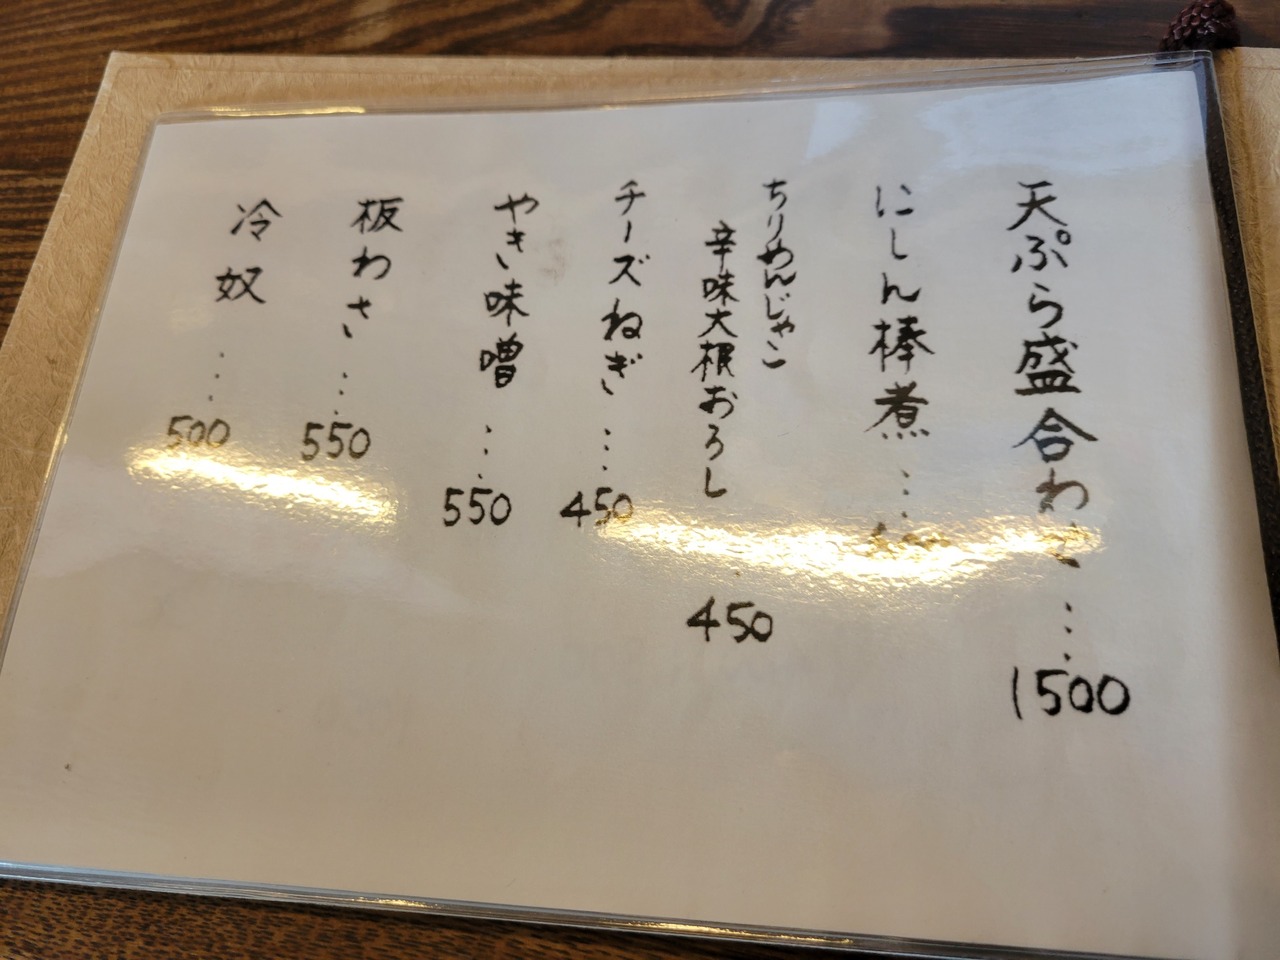 天ぷら盛合わせ…1500
にしん棒煮…
ちりめんじゃこ
辛味大根おろし 450
チーズねぎ…450
やき味噌…550
板わさ…550
冷奴…500